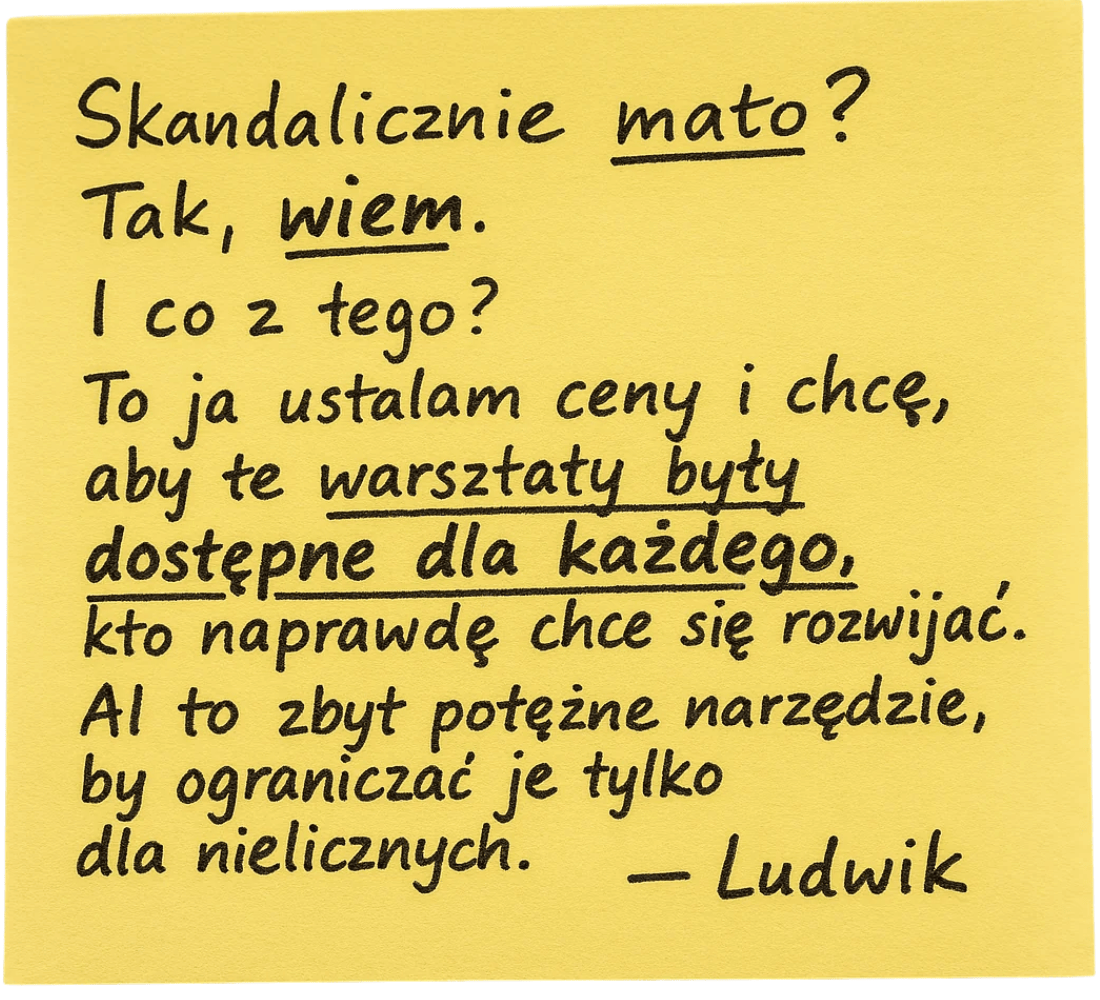 Skandalicznie mało?
Tak, wiem.
I co z tego?
To ja ustalam ceny i chcę,
aby te warsztaty były
dostępne dla każdego,
kto naprawdę chce się rozwijać.
AI to zbyt potężne narzędzie,
by ograniczać je tylko
dla nielicznych.
— Ludwik